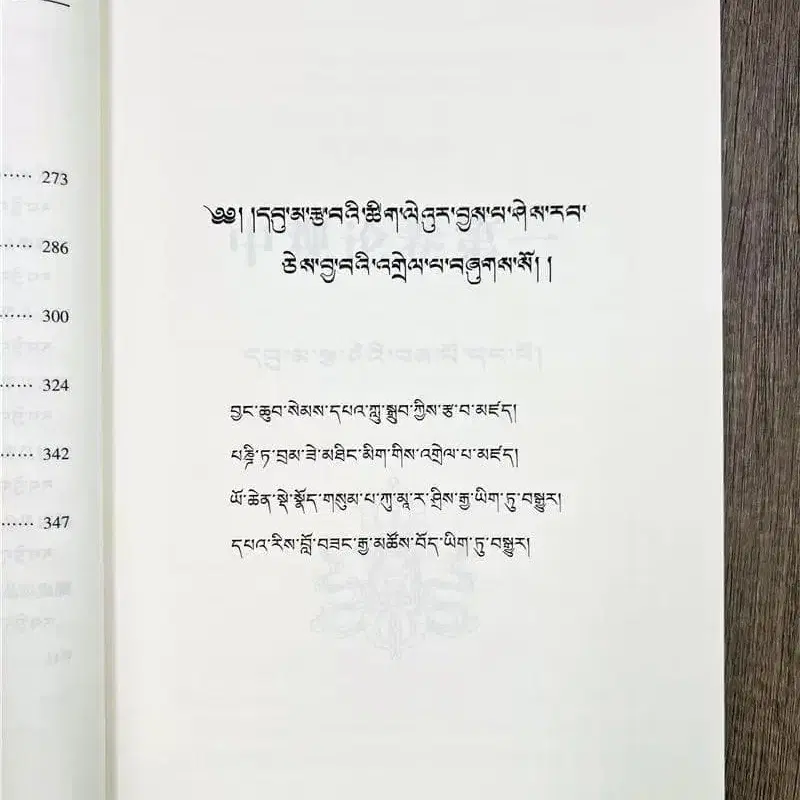 273
286
300
324
342
347
༄༅། །དབུ་མ་རྩ་བའི་ཚིག་ལེའུར་བྱས་པ་ཤེས་རབ་
ཅེས་བྱ་བའི་འགྲེལ་པ་བཞུགས་སོ། །
བྱང་ཆུབ་སེམས་དཔའ་ཀླུ་སྒྲུབ་ཀྱིས་རྩ་བ་མཛད།
པཎྜི་ཏ་བྲམ་ཟེ་མཐིང་མིག་གིས་འགྲེལ་པ་མཛད།
ཡོ་ཆེན་སྡེ་སྣོད་གསུམ་པ་ཀུ་མཱ་ར་ཤྲིས་རྒྱ་ཡིག་ཏུ་བསྒྱུར།
དཔའ་རིས་བློ་བཟང་རྒྱ་མཚོས་བོད་ཡིག་ཏུ་བསྒྱུར།